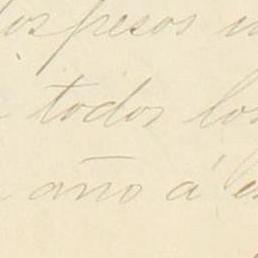 dos pesos
todos los
año á